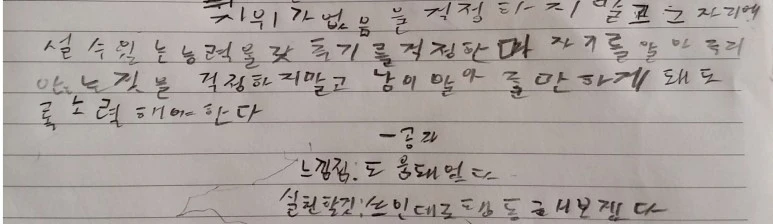 지위가없음을걱정하지말고그자리에
설수있는능력을갖추기를걱정한며자기를알아주지
안는것을 걱정하지말고 남이알아줄만하게 돼도
록노력해야한다
-공자
느낌점:도움돼었다
실천할것:쓰인대로 행동해보겠다